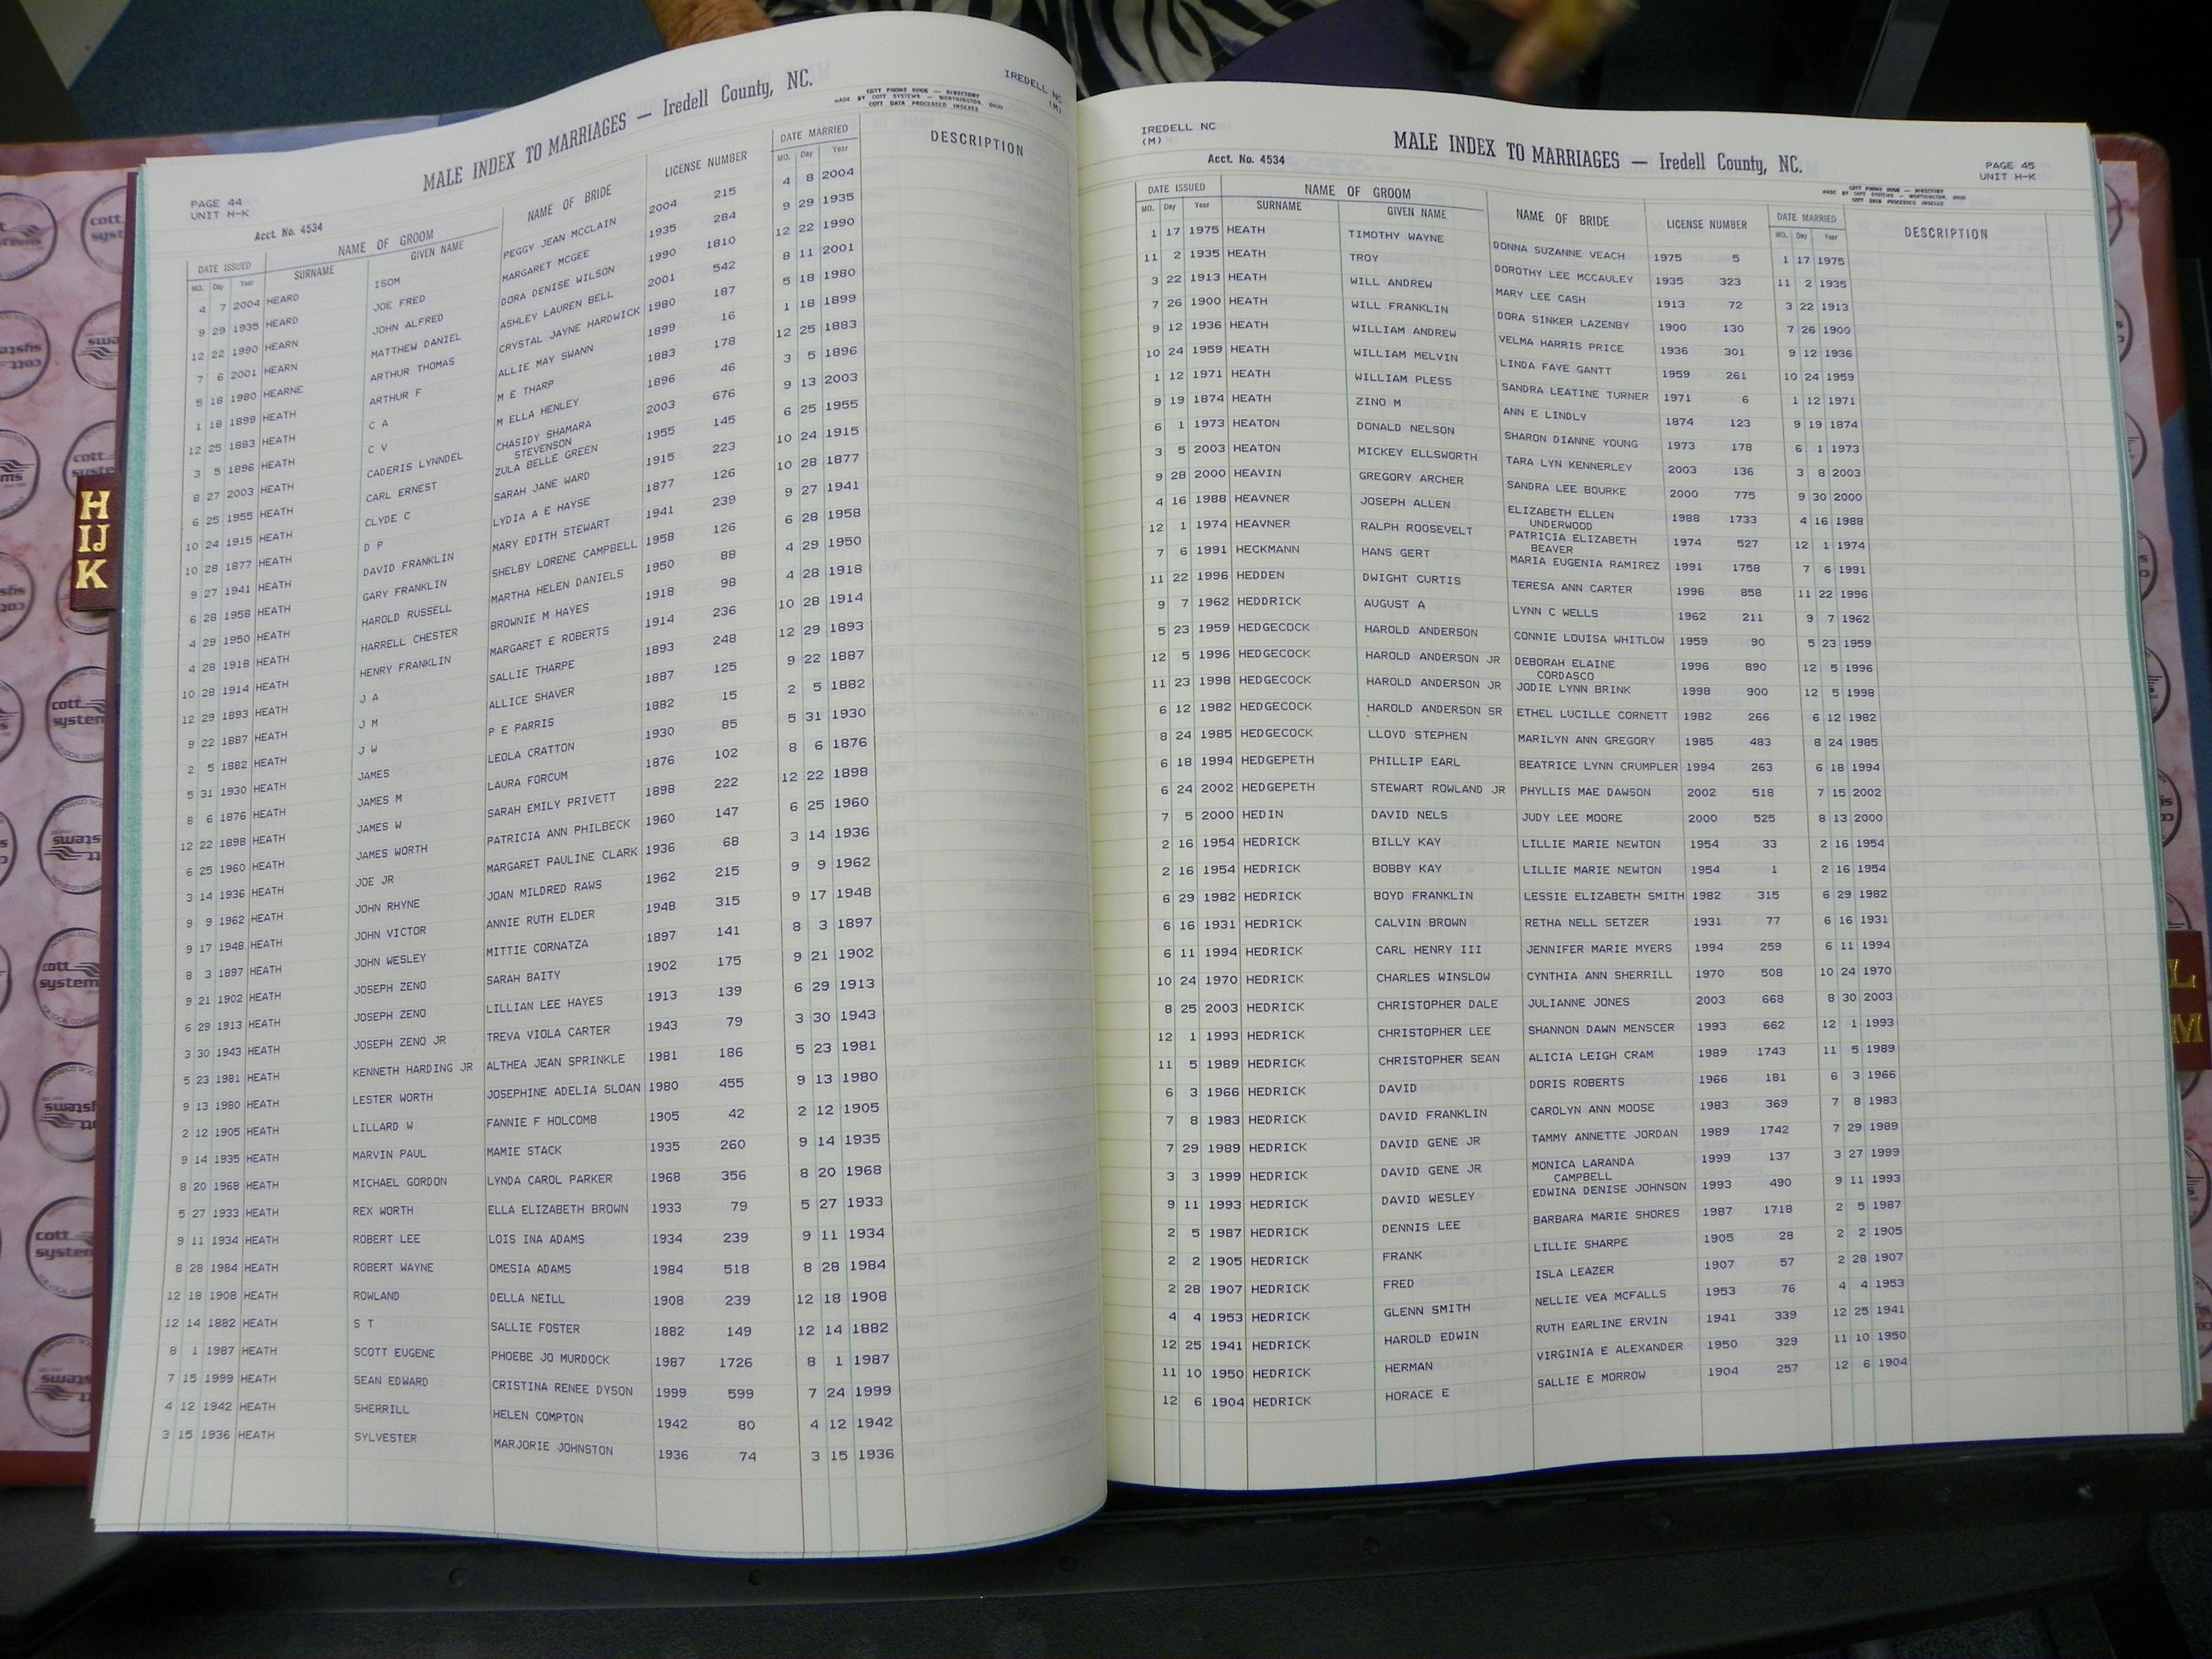 PAGE 44
UNIT H-K
Acct. No. 4534
MALE INDEX TO MARRIAGES — Iredell County, NC.
COTT PHONE BOOK — DIRECTORY
MADE BY COTT SYSTEMS — WORTHINGTON, OHIO
COTT DATA PROCESSED INDEXES
IREDELL NC
(M)
DATE ISSUED NAME OF GROOM NAME OF BRIDE LICENSE NUMBER DATE MARRIED DESCRIPTION
MO. Day Year SURNAME GIVEN NAME MO. Day Year
4 7 2004 HEARD ISOM PEGGY JEAN MCCLAIN 2004 215 4 8 2004
9 29 1935 HEARD JOE FRED MARGARET MCGEE 1935 284 9 29 1935
12 22 1990 HEARN JOHN ALFRED DORA DENISE WILSON 1990 1810 12 22 1990
7 6 2001 HEARN MATTHEW DANIEL ASHLEY LAUREN BELL 2001 542 8 11 2001
5 18 1980 HEARNE ARTHUR THOMAS CRYSTAL JAYNE HARDWICK 1980 187 5 18 1980
1 18 1899 HEATH ARTHUR F ALLIE MAY SWANN 1899 16 1 18 1899
12 25 1883 HEATH C A M E THARP 1883 178 12 25 1883
3 5 1896 HEATH C V M ELLA HENLEY 1896 46 3 5 1896
8 27 2003 HEATH CADERIS LYNNDEL CHASIDY SHAMARA 2003 676 9 13 2003
STEVENSON
6 25 1955 HEATH CARL ERNEST ZULA BELLE GREEN 1955 145 6 25 1955
10 24 1915 HEATH CLYDE C SARAH JANE WARD 1915 223 10 24 1915
10 28 1877 HEATH D P LYDIA A E HAYSE 1877 126 10 28 1877
9 27 1941 HEATH DAVID FRANKLIN MARY EDITH STEWART 1941 239 9 27 1941
6 28 1958 HEATH GARY FRANKLIN SHELBY LORENE CAMPBELL 1958 126 6 28 1958
4 29 1950 HEATH HAROLD RUSSELL MARTHA HELEN DANIELS 1950 88 4 29 1950
4 28 1918 HEATH HARRELL CHESTER BROWNIE M HAYES 1918 98 4 28 1918
10 28 1914 HEATH HENRY FRANKLIN MARGARET E ROBERTS 1914 236 10 28 1914
12 29 1893 HEATH J A SALLIE THARPE 1893 248 12 29 1893
9 22 1887 HEATH J M ALLICE SHAVER 1887 125 9 22 1887
2 5 1882 HEATH J W P E PARRIS 1882 15 2 5 1882
5 31 1930 HEATH JAMES LEOLA CRATTON 1930 85 5 31 1930
8 6 1876 HEATH JAMES M LAURA FORCUM 1876 102 8 6 1876
12 22 1898 HEATH JAMES W SARAH EMILY PRIVETT 1898 222 12 22 1898
6 25 1960 HEATH JAMES WORTH PATRICIA ANN PHILBECK 1960 147 6 25 1960
3 14 1936 HEATH JOE JR MARGARET PAULINE CLARK 1936 68 3 14 1936
9 9 1962 HEATH JOHN RHYNE JOAN MILDRED RAWS 1962 215 9 9 1962
9 17 1948 HEATH JOHN VICTOR ANNIE RUTH ELDER 1948 315 9 17 1948
8 3 1897 HEATH JOHN WESLEY MITTIE CORNATZA 1897 141 8 3 1897
9 21 1902 HEATH JOSEPH ZENO SARAH BAITY 1902 175 9 21 1902
6 29 1913 HEATH JOSEPH ZENO LILLIAN LEE HAYES 1913 139 6 29 1913
3 30 1943 HEATH JOSEPH ZENO JR TREVA VIOLA CARTER 1943 79 3 30 1943
5 23 1981 HEATH KENNETH HARDING JR ALTHEA JEAN SPRINKLE 1981 186 5 23 1981
9 13 1980 HEATH LESTER WORTH JOSEPHINE ADELIA SLOAN 1980 455 9 13 1980
2 12 1905 HEATH LILLARD W FANNIE F HOLCOMB 1905 42 2 12 1905
9 14 1935 HEATH MARVIN PAUL MAMIE STACK 1935 260 9 14 1935
8 20 1968 HEATH MICHAEL GORDON LYNDA CAROL PARKER 1968 356 8 20 1968
5 27 1933 HEATH REX WORTH ELLA ELIZABETH BROWN 1933 79 5 27 1933
9 11 1934 HEATH ROBERT LEE LOIS INA ADAMS 1934 239 9 11 1934
8 28 1984 HEATH ROBERT WAYNE OMESIA ADAMS 1984 518 8 28 1984
12 18 1908 HEATH ROWLAND DELLA NEILL 1908 239 12 18 1908
12 14 1882 HEATH S T SALLIE FOSTER 1882 149 12 14 1882
8 1 1987 HEATH SCOTT EUGENE PHOEBE JO MURDOCK 1987 1726 8 1 1987
7 15 1999 HEATH SEAN EDWARD CRISTINA RENEE DYSON 1999 599 7 24 1999
4 12 1942 HEATH SHERRILL HELEN COMPTON 1942 80 4 12 1942
3 15 1936 HEATH SYLVESTER MARJORIE JOHNSTON 1936 74 3 15 1936
H
IJ
K
IREDELL NC
(M)
Acct. No. 4534
MALE INDEX TO MARRIAGES — Iredell County, NC.
PAGE 45
UNIT H-K
COTT PHONE BOOK — DIRECTORY
MADE BY COTT SYSTEMS — WORTHINGTON, OHIO
COTT DATA PROCESSED INDEXES
DATE ISSUED NAME OF GROOM NAME OF BRIDE LICENSE NUMBER DATE MARRIED DESCRIPTION
MO. Day Year SURNAME GIVEN NAME MO. Day Year
1 17 1975 HEATH TIMOTHY WAYNE DONNA SUZANNE VEACH 1975 5 1 17 1975
11 2 1935 HEATH TROY DOROTHY LEE MCCAULEY 1935 323 11 2 1935
3 22 1913 HEATH WILL ANDREW MARY LEE CASH 1913 72 3 22 1913
7 26 1900 HEATH WILL FRANKLIN DORA SINKER LAZENBY 1900 130 7 26 1900
9 12 1936 HEATH WILLIAM ANDREW VELMA HARRIS PRICE 1936 301 9 12 1936
10 24 1959 HEATH WILLIAM MELVIN LINDA FAYE GANTT 1959 261 10 24 1959
1 12 1971 HEATH WILLIAM PLESS SANDRA LEATINE TURNER 1971 6 1 12 1971
9 19 1874 HEATH ZINO M ANN E LINDLY 1874 123 9 19 1874
6 1 1973 HEATON DONALD NELSON SHARON DIANNE YOUNG 1973 178 6 1 1973
3 5 2003 HEATON MICKEY ELLSWORTH TARA LYN KENNERLEY 2003 136 3 8 2003
9 28 2000 HEAVIN GREGORY ARCHER SANDRA LEE BOURKE 2000 775 9 30 2000
4 16 1988 HEAVNER JOSEPH ALLEN ELIZABETH ELLEN 1988 1733 4 16 1988
UNDERWOOD
12 1 1974 HEAVNER RALPH ROOSEVELT PATRICIA ELIZABETH 1974 527 12 1 1974
BEAVER
7 6 1991 HECKMANN HANS GERT MARIA EUGENIA RAMIREZ 1991 1758 7 6 1991
11 22 1996 HEDDEN DWIGHT CURTIS TERESA ANN CARTER 1996 858 11 22 1996
9 7 1962 HEDDRICK AUGUST A LYNN C WELLS 1962 211 9 7 1962
5 23 1959 HEDGECOCK HAROLD ANDERSON CONNIE LOUISA WHITLOW 1959 90 5 23 1959
12 5 1996 HEDGECOCK HAROLD ANDERSON JR DEBORAH ELAINE 1996 890 12 5 1996
CORDASCO
11 23 1998 HEDGECOCK HAROLD ANDERSON JR JODIE LYNN BRINK 1998 900 12 5 1998
6 12 1982 HEDGECOCK HAROLD ANDERSON SR ETHEL LUCILLE CORNETT 1982 266 6 12 1982
8 24 1985 HEDGECOCK LLOYD STEPHEN MARILYN ANN GREGORY 1985 483 8 24 1985
6 18 1994 HEDGEPETH PHILLIP EARL BEATRICE LYNN CRUMPLER 1994 263 6 18 1994
6 24 2002 HEDGEPETH STEWART ROWLAND JR PHYLLIS MAE DAWSON 2002 518 7 15 2002
7 5 2000 HEDIN DAVID NELS JUDY LEE MOORE 2000 525 8 13 2000
2 16 1954 HEDRICK BILLY KAY LILLIE MARIE NEWTON 1954 33 2 16 1954
2 16 1954 HEDRICK BOBBY KAY LILLIE MARIE NEWTON 1954 1 2 16 1954
6 29 1982 HEDRICK BOYD FRANKLIN LESSIE ELIZABETH SMITH 1982 315 6 29 1982
6 16 1931 HEDRICK CALVIN BROWN RETHA NELL SETZER 1931 77 6 16 1931
6 11 1994 HEDRICK CARL HENRY III JENNIFER MARIE MYERS 1994 259 6 11 1994
10 24 1970 HEDRICK CHARLES WINSLOW CYNTHIA ANN SHERRILL 1970 508 10 24 1970
8 25 2003 HEDRICK CHRISTOPHER DALE JULIANNE JONES 2003 668 8 30 2003
12 1 1993 HEDRICK CHRISTOPHER LEE SHANNON DAWN MENSCER 1993 662 12 1 1993
11 5 1989 HEDRICK CHRISTOPHER SEAN ALICIA LEIGH CRAM 1989 1743 11 5 1989
6 3 1966 HEDRICK DAVID DORIS ROBERTS 1966 181 6 3 1966
7 8 1983 HEDRICK DAVID FRANKLIN CAROLYN ANN MOOSE 1983 369 7 8 1983
7 29 1989 HEDRICK DAVID GENE JR TAMMY ANNETTE JORDAN 1989 1742 7 29 1989
3 3 1999 HEDRICK DAVID GENE JR MONICA LARANDA 1999 137 3 27 1999
CAMPBELL
9 11 1993 HEDRICK DAVID WESLEY EDWINA DENISE JOHNSON 1993 490 9 11 1993
2 5 1987 HEDRICK DENNIS LEE BARBARA MARIE SHORES 1987 1718 2 5 1987
2 2 1905 HEDRICK FRANK LILLIE SHARPE 1905 28 2 2 1905
2 28 1907 HEDRICK FRED ISLA LEAZER 1907 57 2 28 1907
4 4 1953 HEDRICK GLENN SMITH NELLIE VEA MCFALLS 1953 76 4 4 1953
12 25 1941 HEDRICK HAROLD EDWIN RUTH EARLINE ERVIN 1941 339 12 25 1941
11 10 1950 HEDRICK HERMAN VIRGINIA E ALEXANDER 1950 329 11 10 1950
12 6 1904 HEDRICK HORACE E SALLIE E MORROW 1904 257 12 6 1904
L
M
cott
systems